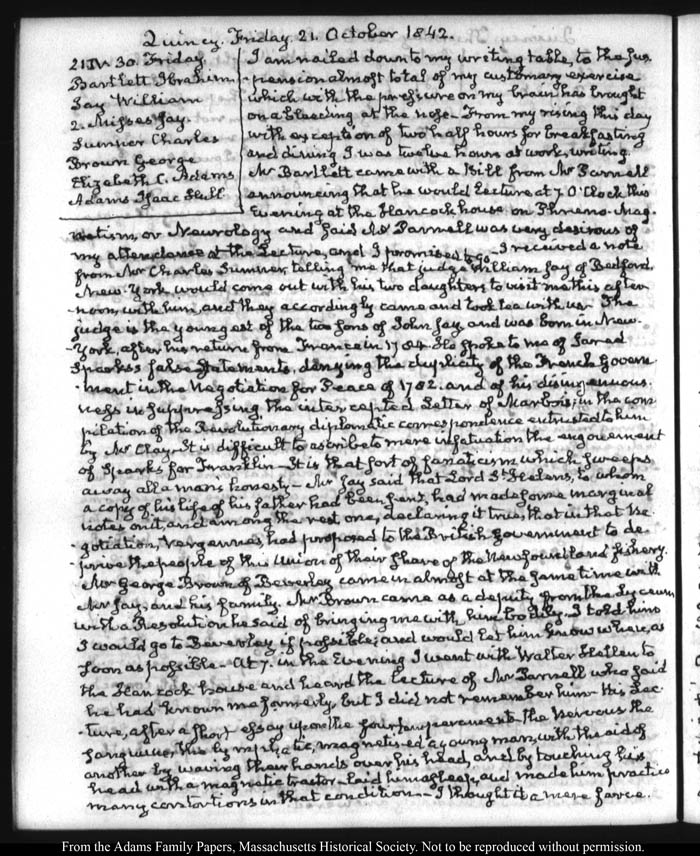 Quincy. Friday 21. October 1842.
21. IV. 30. Friday
Bartlett Ibrahim
Jay William
2. Misses Jay.
Sumner Charles
Brown George
Elizabeth C. Adams
Adams Isaac Hull.
I am nailed down to my writing table, to the sus-
pension almost total of my customary exercise
which with the pressure on my brain has brought
on a bleeding at the nose. From my rising this day
with exception of two half hours for breakfasting
and dining I was twelve hours at work, writing.
Mr Bartlett came with a Bill from Mr
announcing that he would lecture at 7. O'Clock this
Evening at the Hancock house on Phreno-Mag-
netism, or Neurology and said Mr was very desirous of
my attendance at the Lecture, and I promised to go. I received a note
from Mr Charles Sumner, telling me that judge William Jay of Bedford,
New-York, would come out with his two daughters to visit me this after-
noon, with him, and they accordingly came and took tea with us. The
judge is the youngest of the two sons of John Jay, and was born in New-
York, after his return from France in 1784. He spoke to me of Jared
Sparks's false statements, denying the duplicity of the French Govern-
ment in the Negotiation for Peace of 1782. and of his disingenuous-
ness in suppressing the intercepted Letter of Marbois, in the com-
pilation of the Revolutionary diplomatic correspondence entrusted to him
by Mr Clay. It is difficult to ascribe to mere infatuation the engouement
of Sparks for Franklin—It is that sort of fanaticism which sweeps
away all a man's honesty—Mr Jay said that Lord St Helens, to whom
a copy of his life of his father had been sent, had made some marginal
notes on it, and among the rest one, declaring it true, that in that Ne-
gotiation, Vergennes, had proposed to the British Government to de-
prive the people of this Union of their share of the Newfoundland fishery.
Mr George Brown of Beverley came in almost at the same time with
Mr Jay, and his family. Mr Brown came as a deputy from the Lyceum
with a Resolution he said of bringing me with him bodily. I told him
I would go to Beverley if possible; and would let him know when, as
soon as possible—At 7. in the Evening I went with Walter Hellen to
the Hancock house and heard the lecture of Mr who said
he had known me formerly, but I did not remember him. His Lec-
ture, after a short essay upon the four temperaments the Nervous the
sanguine, the lymphatic, magnetised a young man, with the aid of
another by waving their hands over his head, and by touching his
head with a magnetic tractor—laid him asleep, and made him practice
many contortions in that condition—I thought it a mere farce.
From the Adams Family Papers, Massachusetts Historical Society. Not to be reproduced without permission.